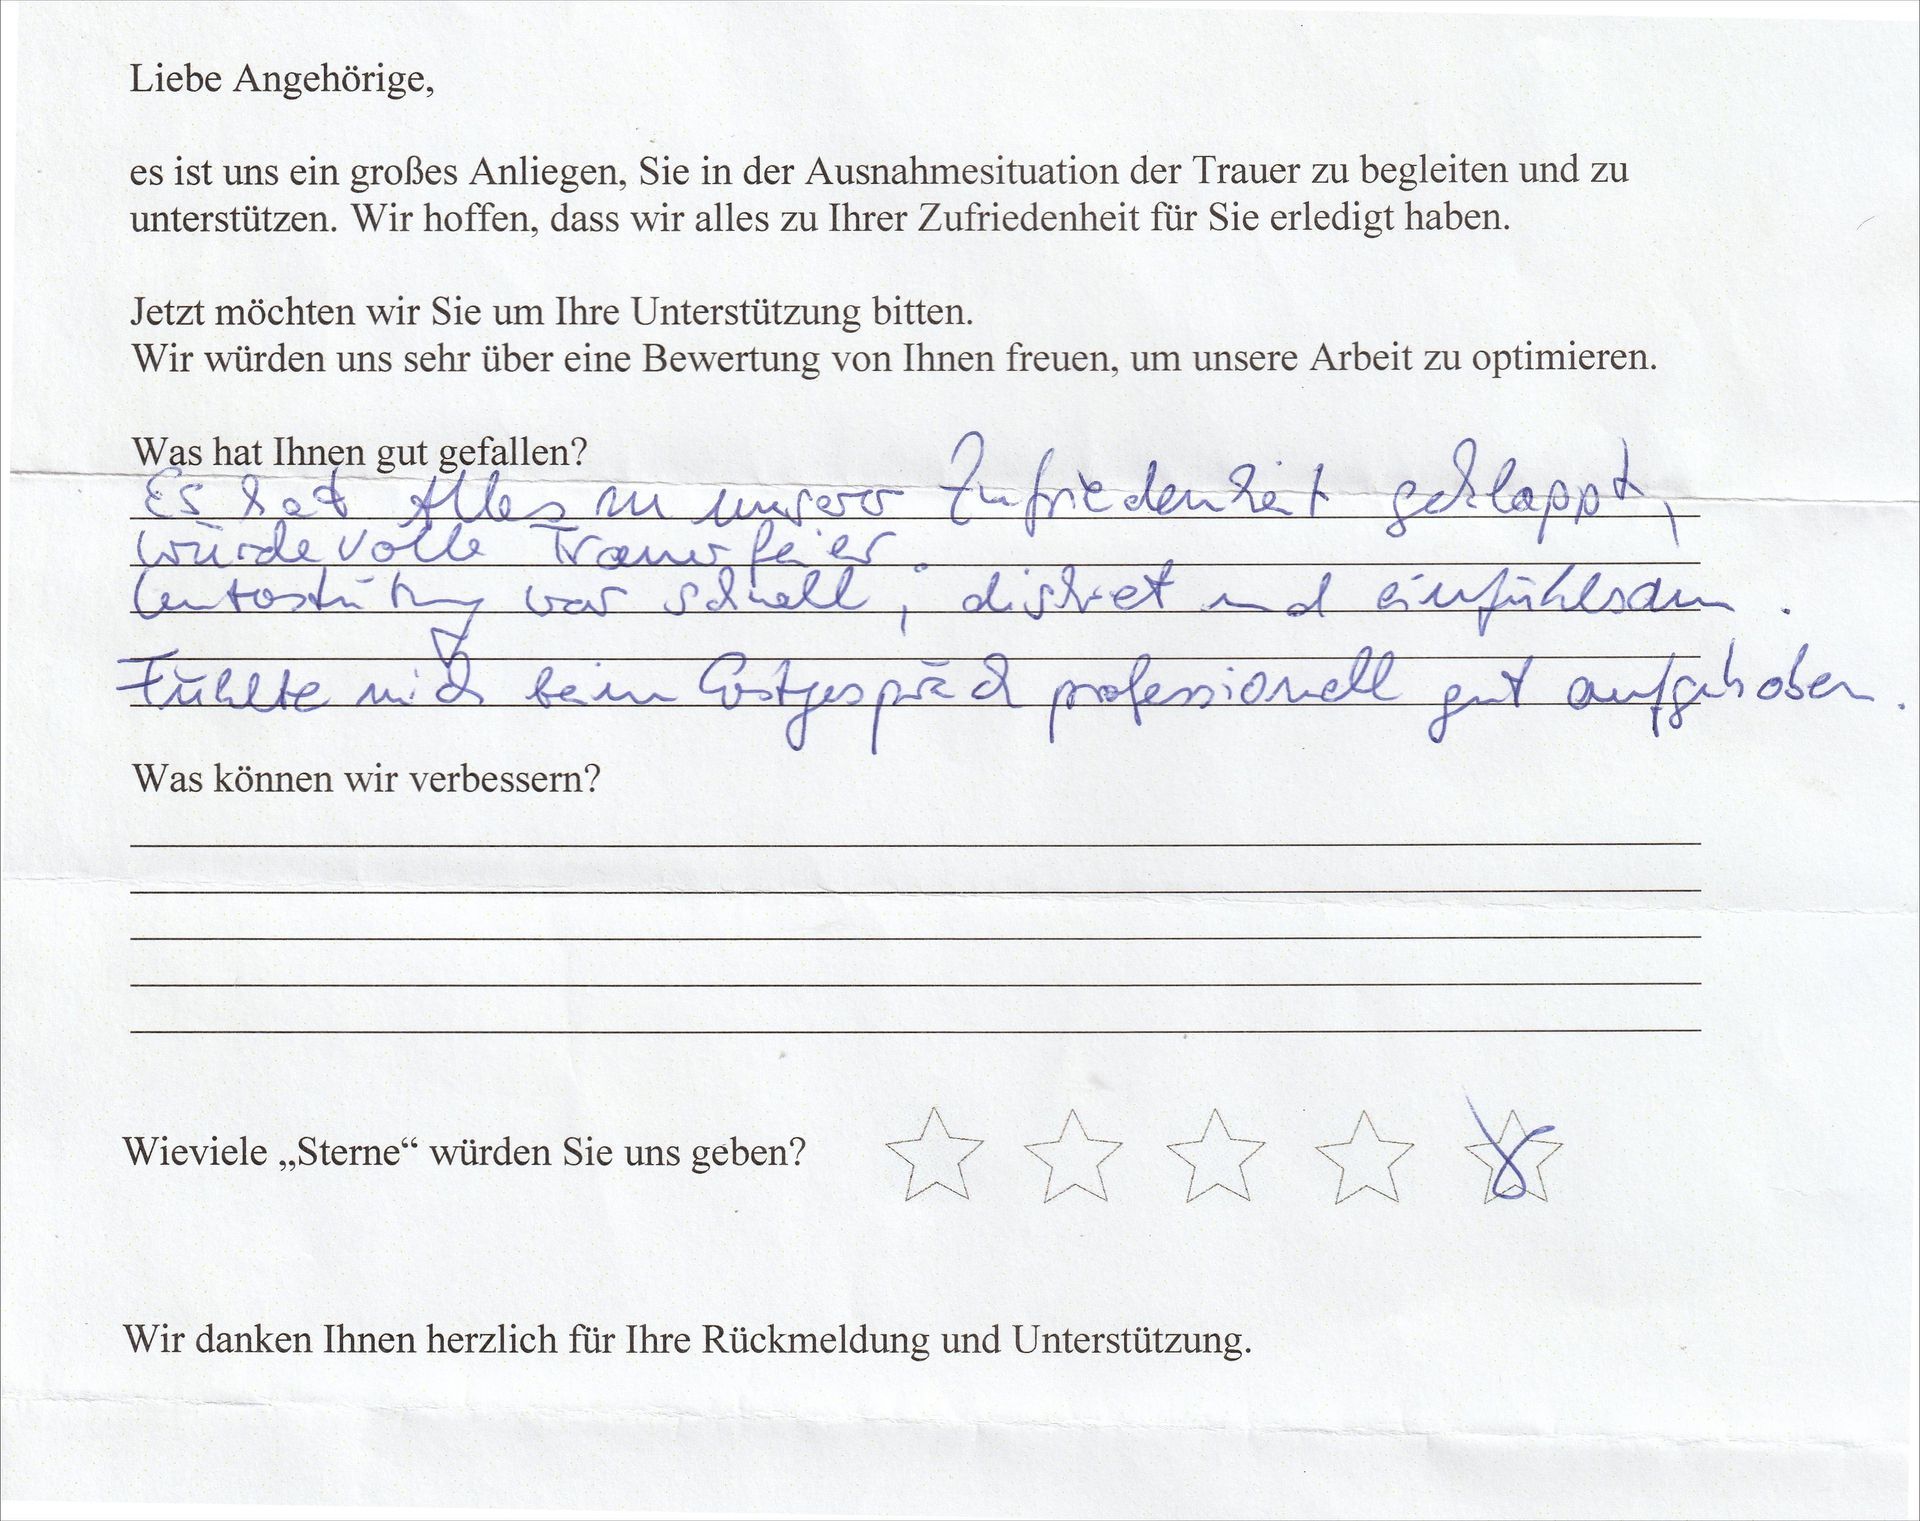 Liebe Angehörige,
es ist uns ein großes Anliegen, Sie in der Ausnahmesituation der Trauer zu begleiten und zu
unterstützen. Wir hoffen, dass wir alles zu Ihrer Zufriedenheit für Sie erledigt haben.
Jetzt möchten wir Sie um Ihre Unterstützung bitten.
Wir würden uns sehr über eine Bewertung von Ihnen freuen, um unsere Arbeit zu optimieren.
Was hat Ihnen gut gefallen?
Es hat Alles zu unserer Zufriedenheit geklappt,
würdevolle Trauerfeier.
Unterstützung war schnell, diskret und einfühlsam.
Fühlte mich beim Erstgespräch professionell gut aufgehoben.
Was können wir verbessern?
Wieviele „Sterne“ würden Sie uns geben?
Wir danken Ihnen herzlich für Ihre Rückmeldung und Unterstützung.